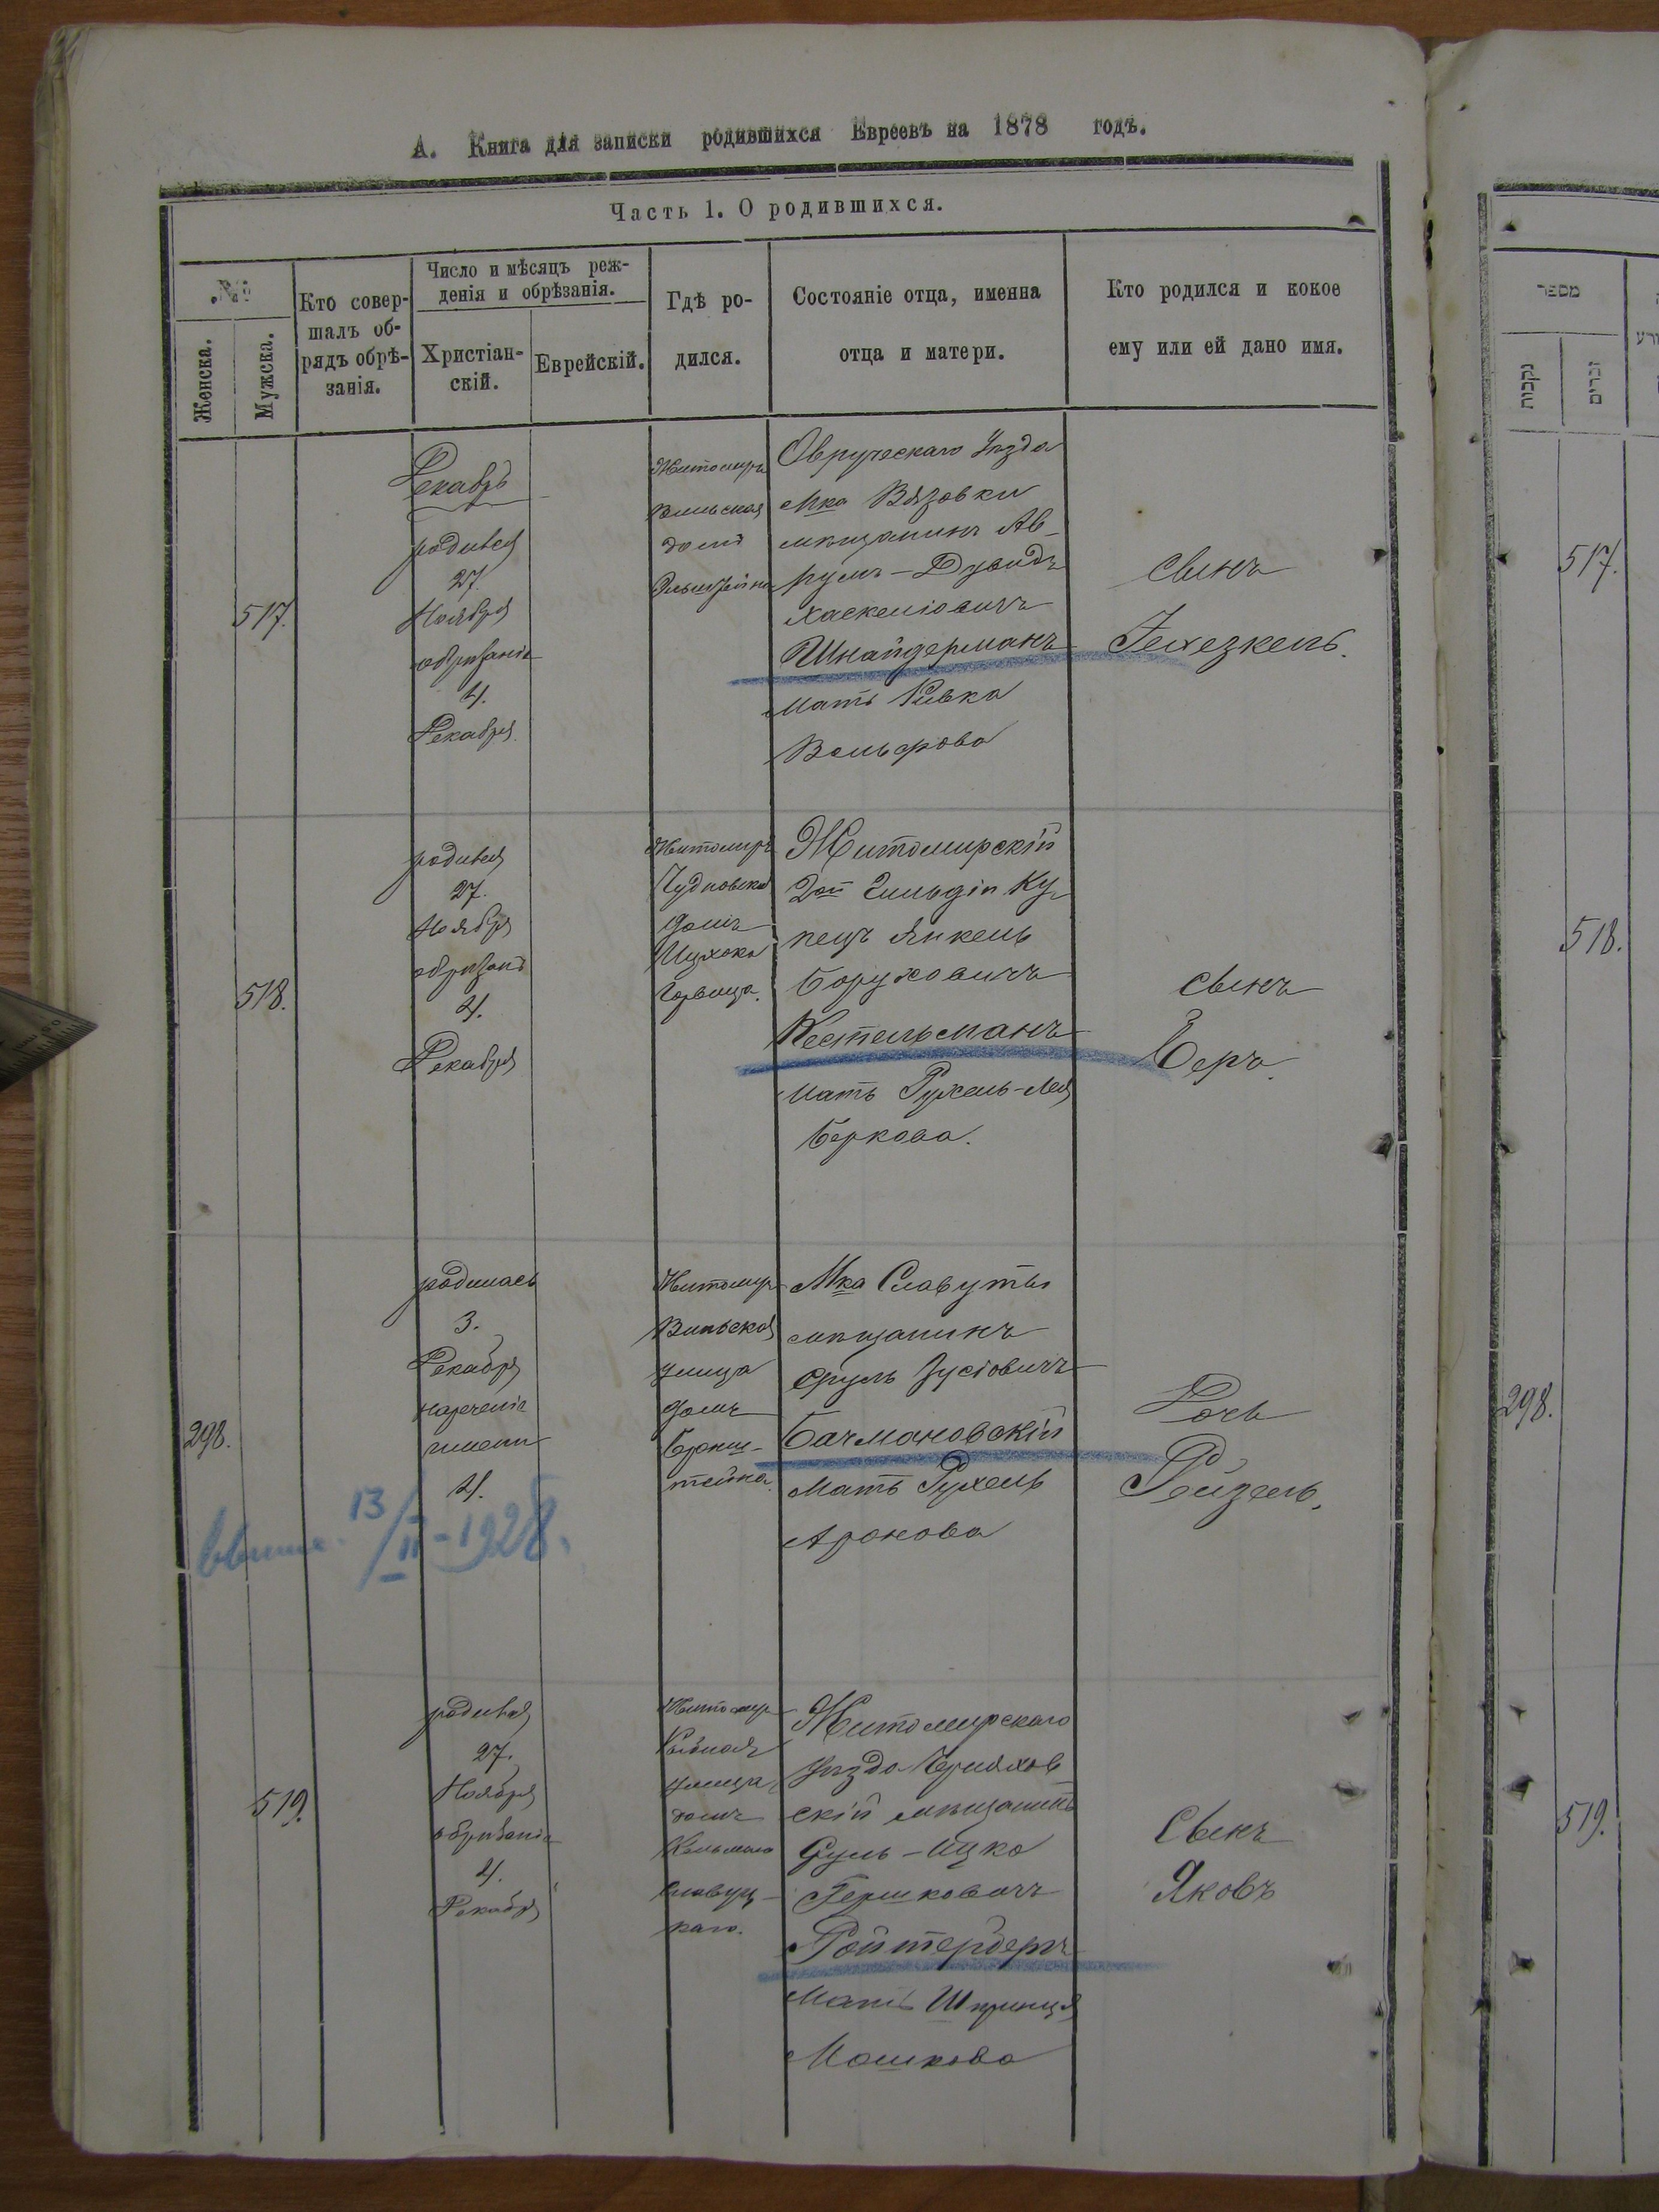 А. Книга для записки родившихся Евреевъ на 1878 годъ.
Часть 1. О родившихся.
№
Женска.
Мужска.
Кто совер-
шалъ об-
рядъ обрѣ-
занія.
Число и мѣсяцъ реж-
денія и обрѣзанія.
Христіан-
скій.
Еврейскій.
Гдѣ ро-
дился.
Состояніе отца, именна
отца и матери.
Кто родился и кокое
ему или ей дано имя.
517.
Декабрь
родился
27
Ноября
обрѣзаніе
4.
Декабря
Житомиръ
домъ
Овручскаго Уѣзда
Мка Вязовки
мѣщанинъ Ав-
румъ-Дувидъ
Хаскеліовичъ
Шнайдерманъ
Мать Ривка
Вольфова
сынъ
Іехезкель.
518.
родился
27.
Ноября
обрѣзанъ
4.
Декабря
Житомиръ
Чудновская
домъ
Горвица.
Житомирскій
2ой Гильдіи Ку-
пецъ Янкель
Боруховичъ
Кестельманъ
Мать Рухель-Лея
Беркова.
сынъ
Беръ.
298.
родилась
3.
Декабря
нареченіе
имени
4.
13/II-1928.
Житомиръ
Вильская
улица
домъ
Бронш-
тейна.
Мка Славуты
мѣщанинъ
Сруль Зусіовичъ
Бачмановскій
Мать Рухель
Аронова
Дочь
Рейзель.
519.
родился
27.
Ноября
обрѣзаніе
4.
Декабря
Житомиръ
Рыбная
улица
домъ
Кельмана
Славуц-
каго.
Житомирскаго
Уѣзда Черняхов-
скій мѣщанинъ
Сруль-Ицко
Гершковичъ
Ройтербергъ
Мать Шпринця
Мошкова
Сынъ
Яковъ
מספר
נקבות
זכרים
517.
518.
298.
519.